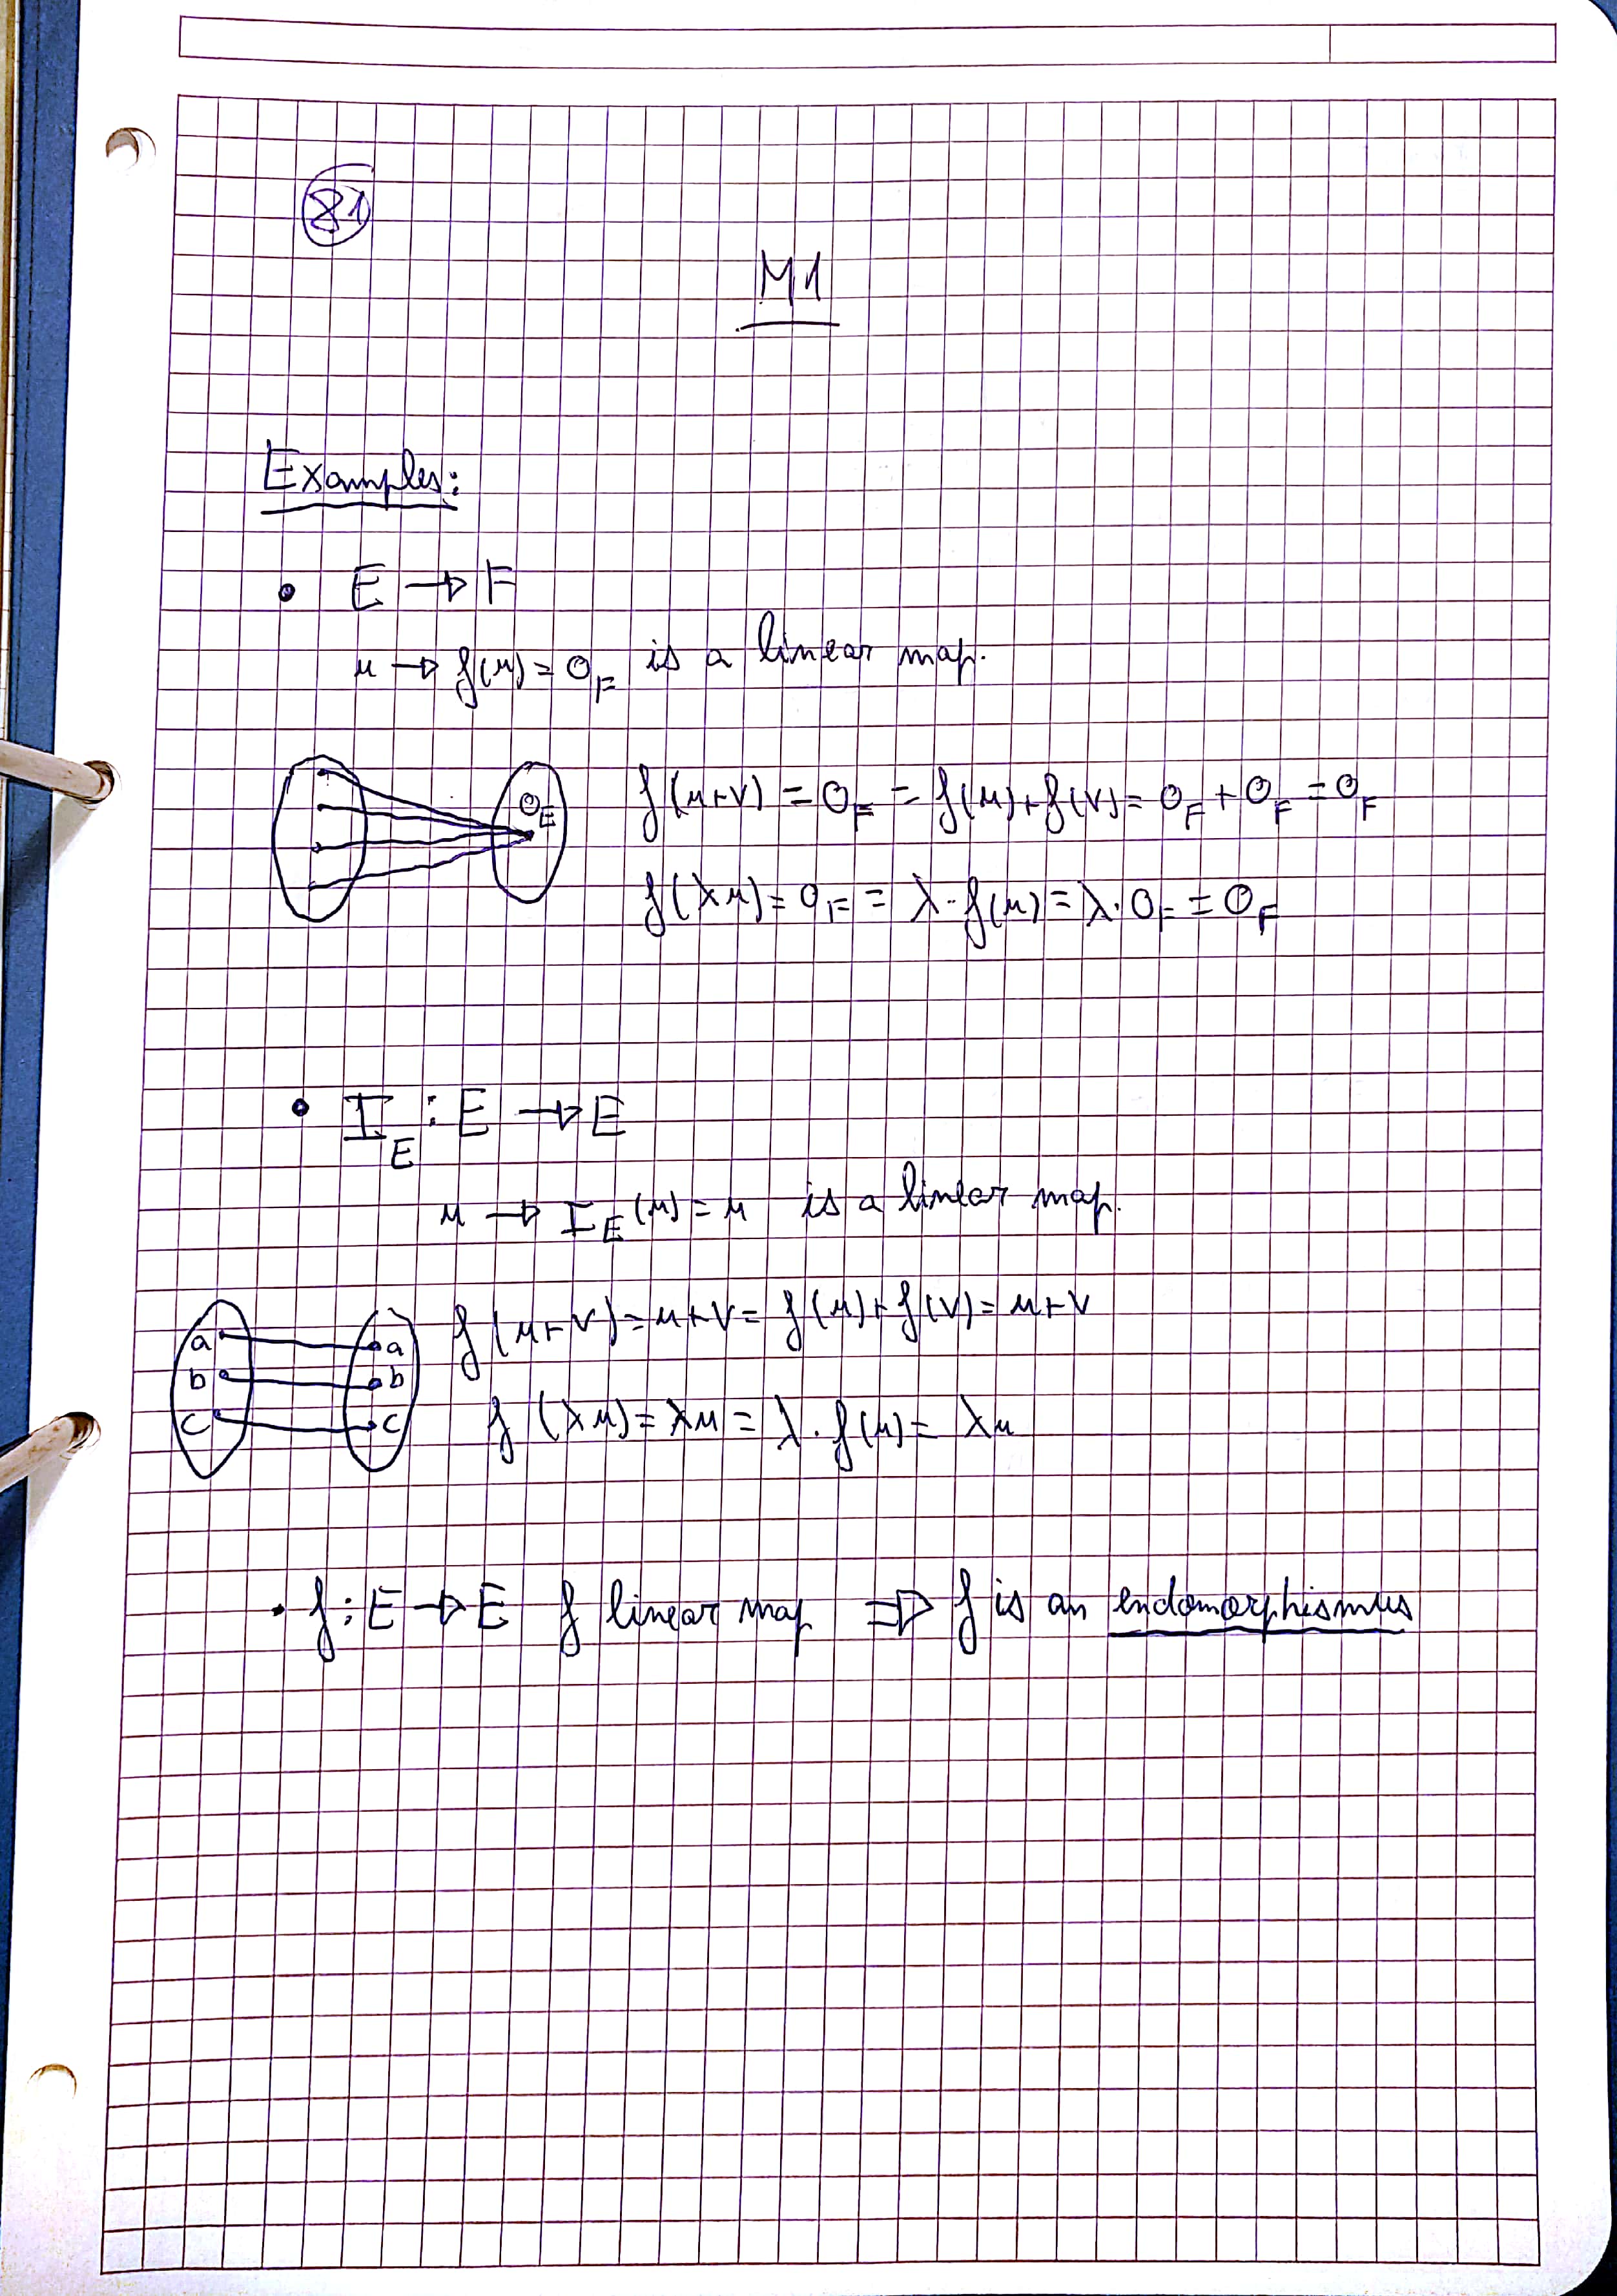 81
M1
Examples:
• E → F
u → f(u) = 0_F is a linear map.
0_E
f(u+v) = 0_F = f(u)+f(v) = 0_F + 0_F = 0_F
f(λu) = 0_F = λ·f(u) = λ·0_F = 0_F
• I_E : E → E
u → I_E(u) = u is a linear map.
a a
b b
c c
f(u+v) = u+v = f(u)+f(v) = u+v
f(λu) = λu = λ·f(u) = λu
• f : E → E f linear map ⇒ f is an endomorphismus